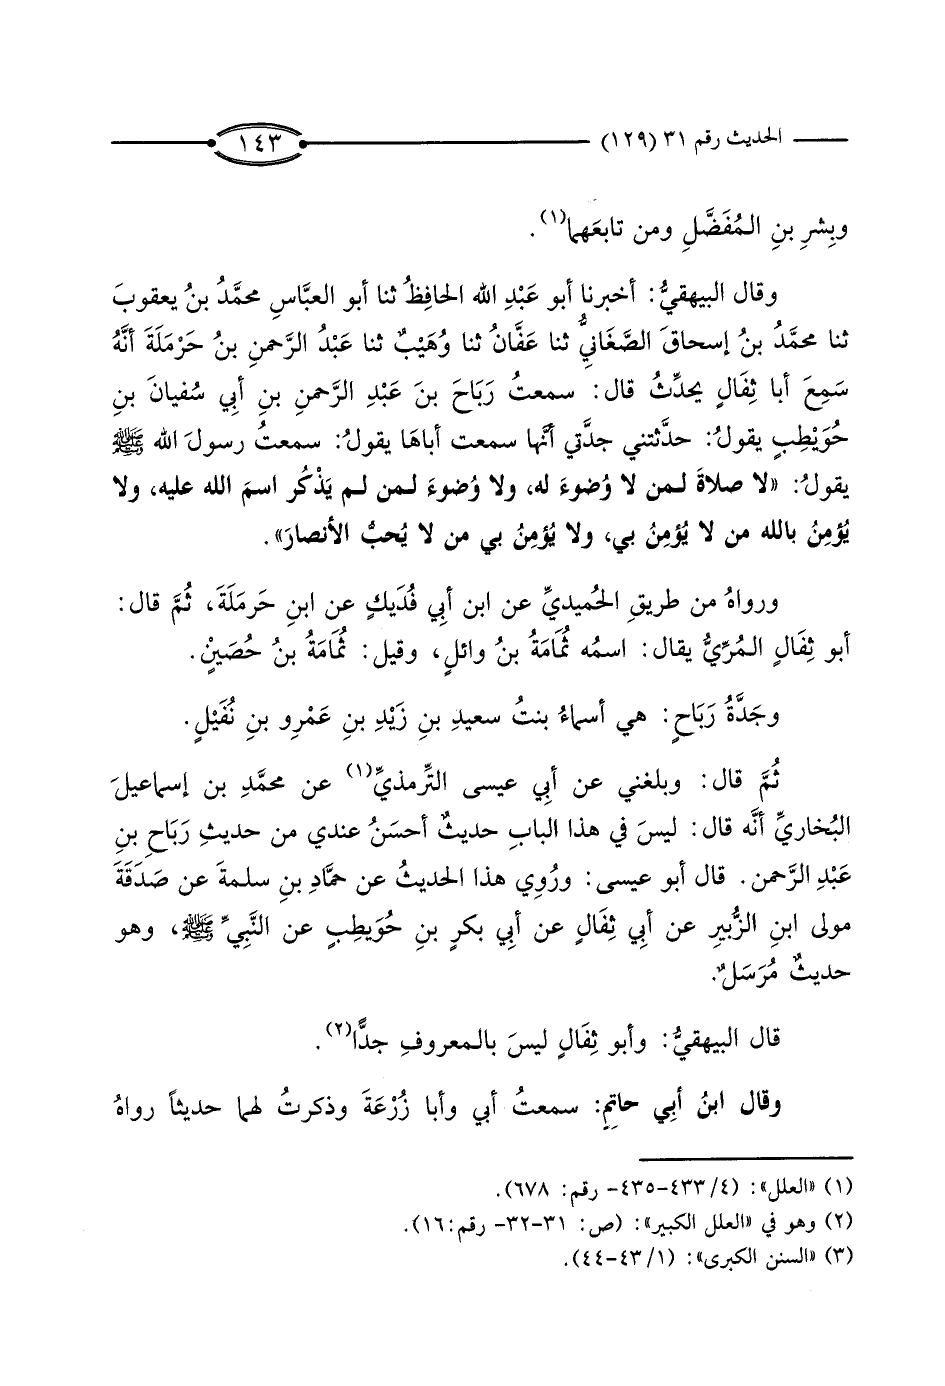 الحديث رقم ٣١ (١٢٩) ١٤٣
وبِشرِ بنِ المُفَضَّلِ ومن تابعَهما(١).
وقال البيهقيُّ: أخبرنا أبو عَبْدِ الله الحافِظُ ثنا أبو العبَّاسِ محمَّدُ بنُ يعقوبَ
ثنا محمَّدُ بنُ إسحاقَ الصَّغَانيُّ ثنا عَفَّانُ ثنا وُهَيْبٌ ثنا عَبْدُ الرَّحمنِ بنُ حَرْمَلَةَ أنَّهُ
سَمِعَ أبا ثِفَالٍ يحدِّثُ قال: سمعتُ رَبَاحَ بنَ عَبْدِ الرَّحمنِ بنِ أبي سُفيانَ بنِ
حُوَيْطِبٍ يقولُ: حدَّثتني جدَّتي أنَّها سمعت أباهَا يقولُ: سمعتُ رسولَ الله ﷺ
يقولُ: «لا صلاةَ لمن لا وُضوءَ له، ولا وُضوءَ لمن لم يَذْكُر اسمَ الله عليه، ولا
يُؤمِنُ بالله من لا يُؤمِنُ بي، ولا يُؤمِنُ بي من لا يُحبُّ الأنصارَ».
ورواهُ من طريقِ الحُميديِّ عن ابن أبي فُدَيكٍ عن ابنِ حَرمَلَةَ، ثُمَّ قال:
أبو ثِفَالٍ المُرِّيُّ يقال: اسمُه ثُمَامَةُ بنُ وائلٍ، وقيل: ثُمَامَةُ بنُ حُصَيْنٍ.
وجَدَّةُ رَبَاحٍ: هي أسماءُ بنتُ سعيدِ بنِ زَيْدِ بنِ عَمْرِو بنِ نُفَيْلٍ.
ثُمَّ قال: وبلغني عن أبي عيسى التِّرمذيِّ(١) عن محمَّدِ بن إسماعيلَ
البُخاريِّ أنَّه قال: ليسَ في هذا البابِ حديثٌ أحسَنُ عندي من حديثِ رَبَاحِ بنِ
عَبْدِ الرَّحمن. قال أبو عيسى: ورُوِي هذا الحديثُ عن حمَّادِ بنِ سلمةَ عن صَدَقَةَ
مولى ابنِ الزُّبيرِ عن أبي ثِفَالٍ عن أبي بكرِ بنِ حُوَيطِبٍ عن النَّبيِّ ﷺ، وهو
حديثٌ مُرَسَلٌ.
قال البيهقيُّ: وأبو ثِفَالٍ ليسَ بالمعروفِ جدًّا(٢).
وقال ابنُ أبي حاتِمٍ: سمعتُ أبي وأبا زُرْعَةَ وذكرتُ لهما حديثاً رواهُ
(١) «العلل»: (٤/ ٤٣٣-٤٣٥- رقم: ٦٧٨).
(٢) وهو في «العلل الكبير»: (ص: ٣١-٣٢- رقم:١٦).
(٣) «السنن الكبرى»: (١/ ٤٣-٤٤).